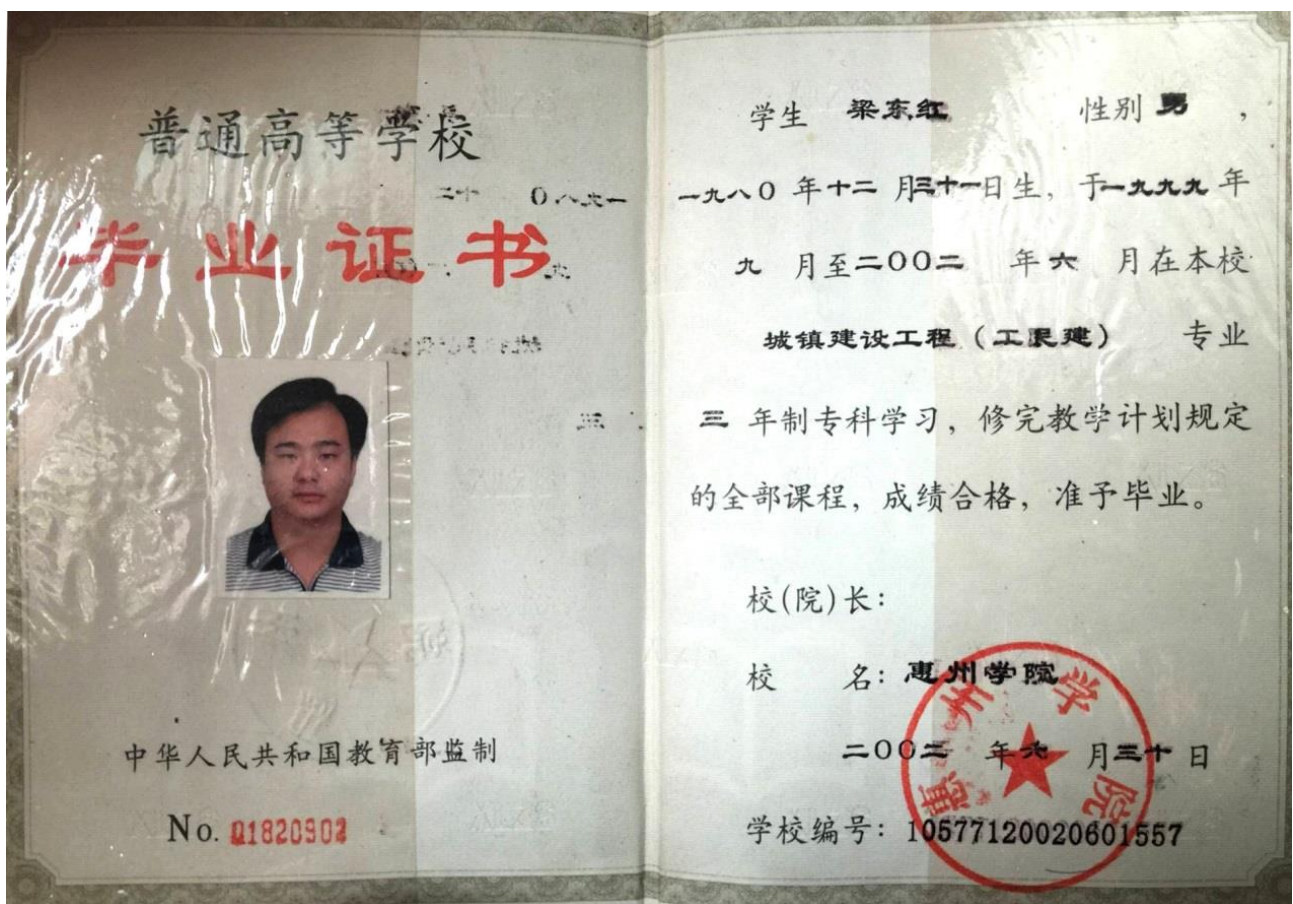 普通高等学校
毕业证书
中华人民共和国教育部监制
No. 01820902
学生 梁东红 性别 男 ,
一九八〇 年十二 月三十一日生, 于一九九九 年
九 月至二〇〇二 年六 月在本校
城镇建设工程(工民建) 专业
三 年制专科学习, 修完教学计划规定
的全部课程, 成绩合格, 准予毕业。
校(院)长:
校 名: 惠州学院
二〇〇二 年六 月三十 日
学校编号: 10577120020601557
惠州学院